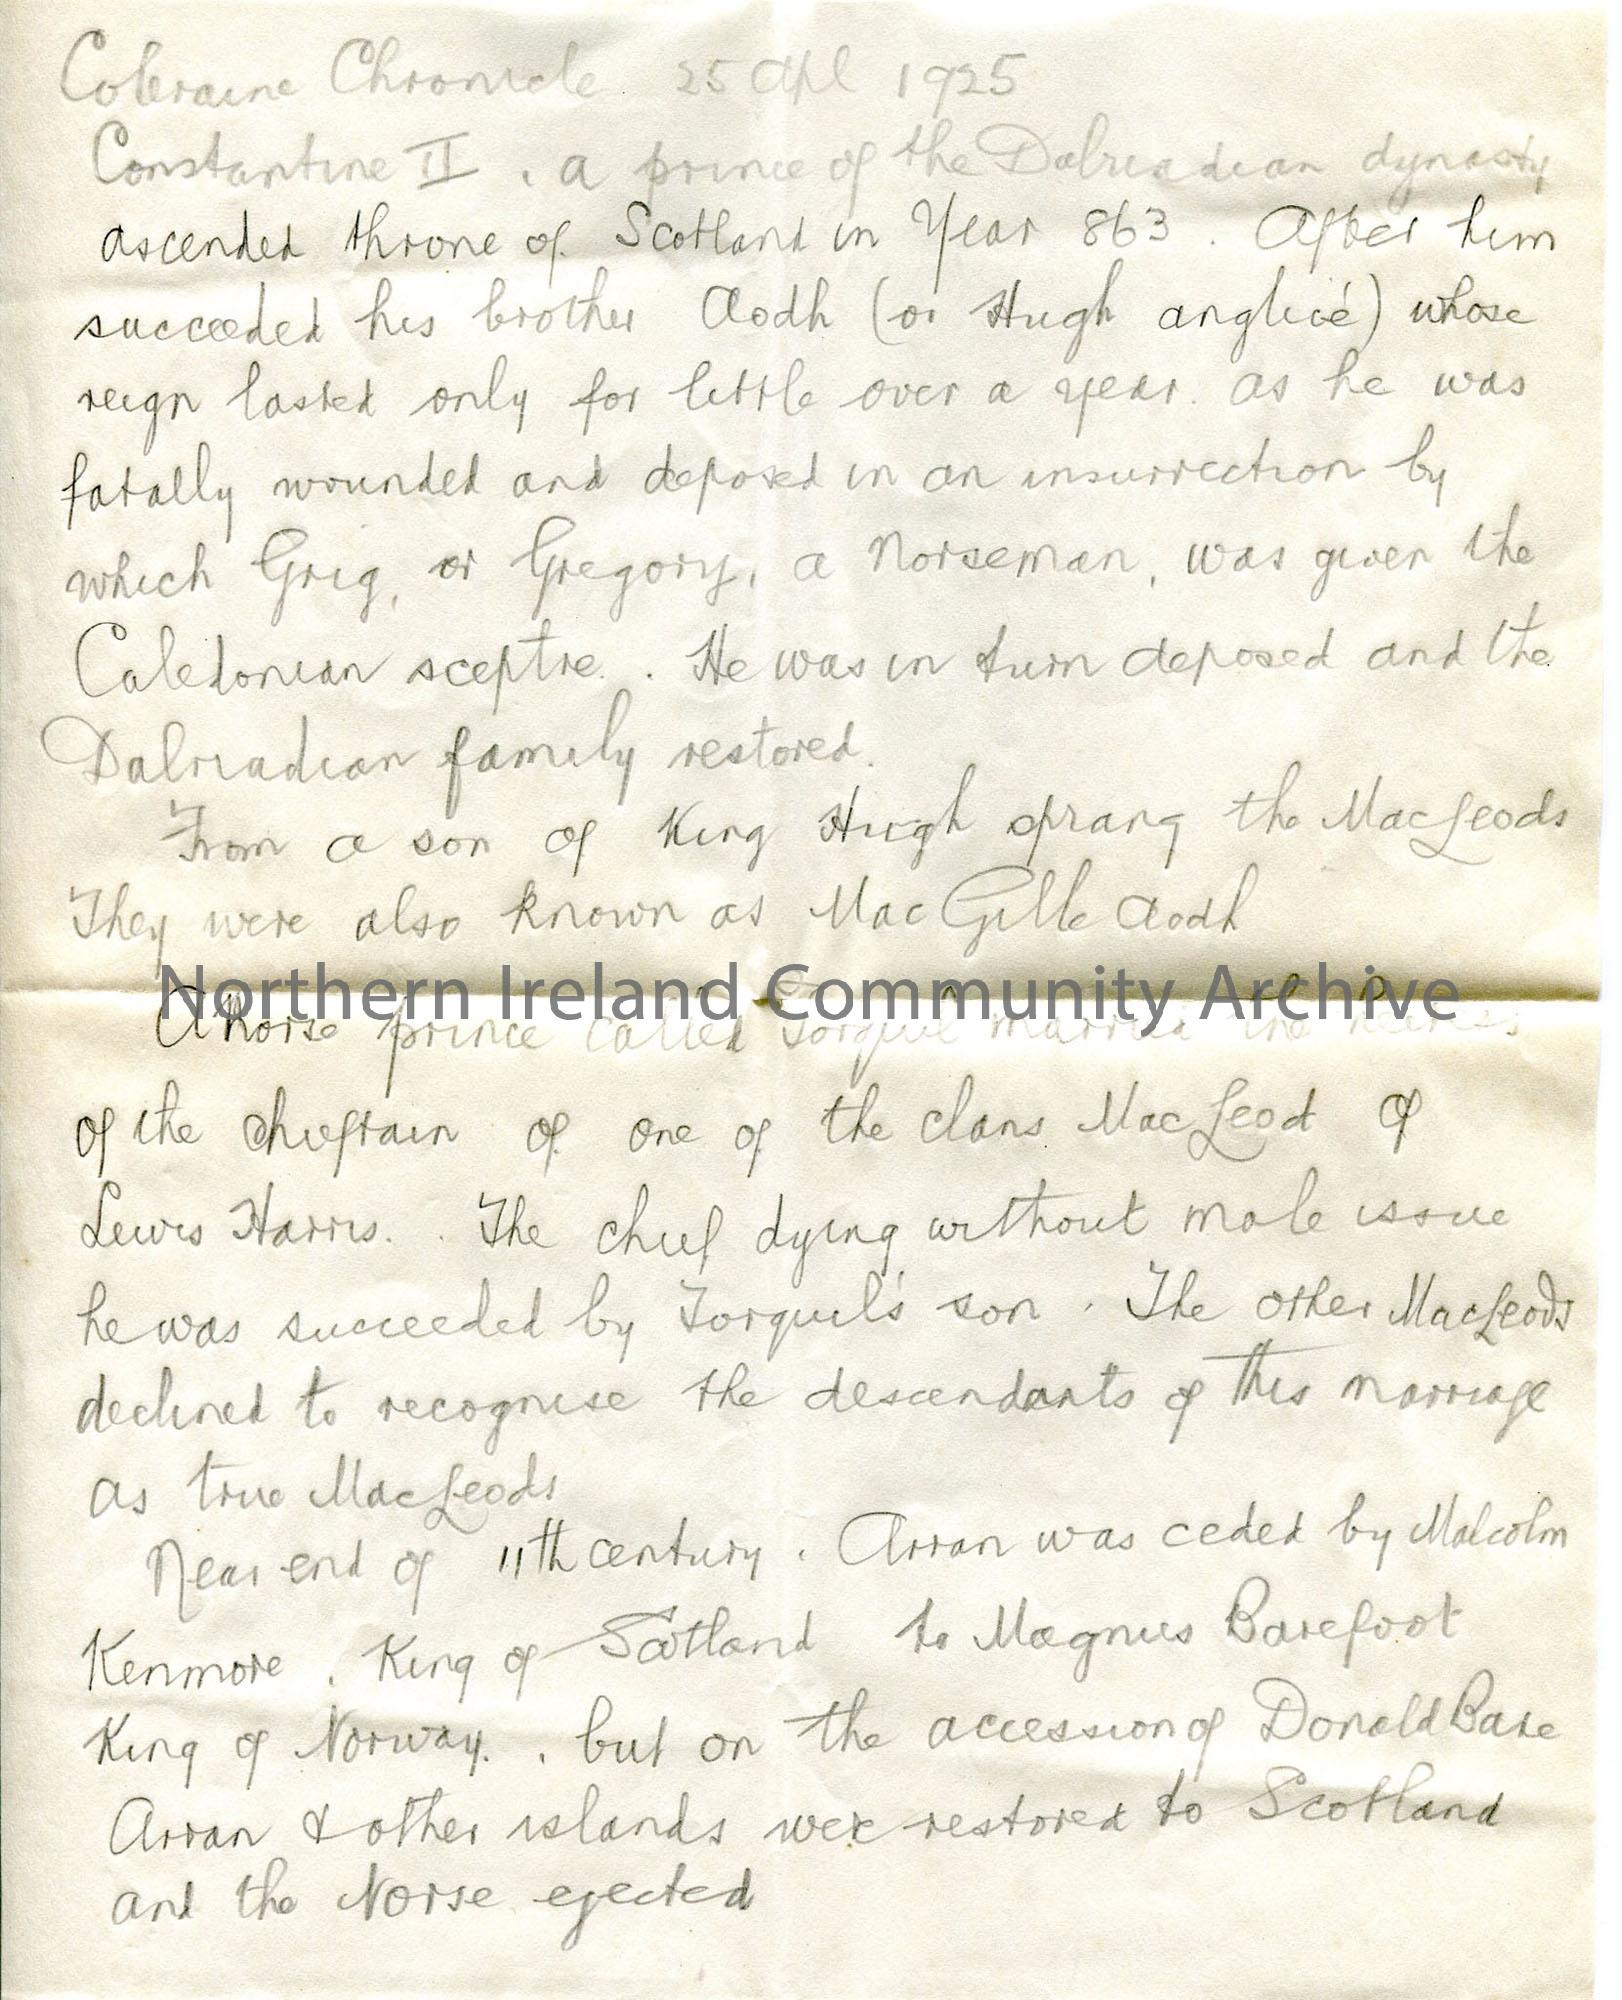 Coleraine Chronicle 25 Apl 1925
Constantine II, a prince of the Dalriadian dynasty
ascended throne of Scotland in Year 863. After him
succeeded his brother Aodh (or Hugh anglicé) whose
reign lasted only for little over a year. as he was
fatally wounded and deposed in an insurrection by
which Grig, or Gregory, a Norseman, was given the
Caledonian sceptre. He was in turn deposed and the
Dalriadian family restored.
From a son of King Hugh sprang the MacLeods
They were also known as Mac Gille Aodh
Northern Ireland Community Archive
A Norse prince called Torquil married the heiress
of the chieftain of one of the clans MacLeod of
Lewis Harris. The chief dying without male issue
he was succeeded by Torquil's son. The other MacLeods
declined to recognise the descendants of this marriage
as true MacLeods
Near end of 11th century. Arran was ceded by Malcolm
Kenmore, King of Scotland to Magnus Barefoot
King of Norway, but on the accession of Donald Bane
Arran & other islands were restored to Scotland
and the Norse ejected